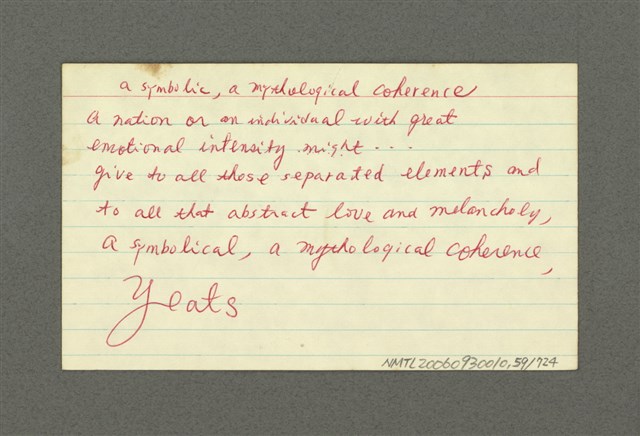 a symbolic, a mythological coherence
A nation or an individual with great
emotional intensity might . . .
give to all those separated elements and
to all that abstract love and melancholy,
a symbolical, a mythological coherence,
Yeats
NMTL20060930010,59/724